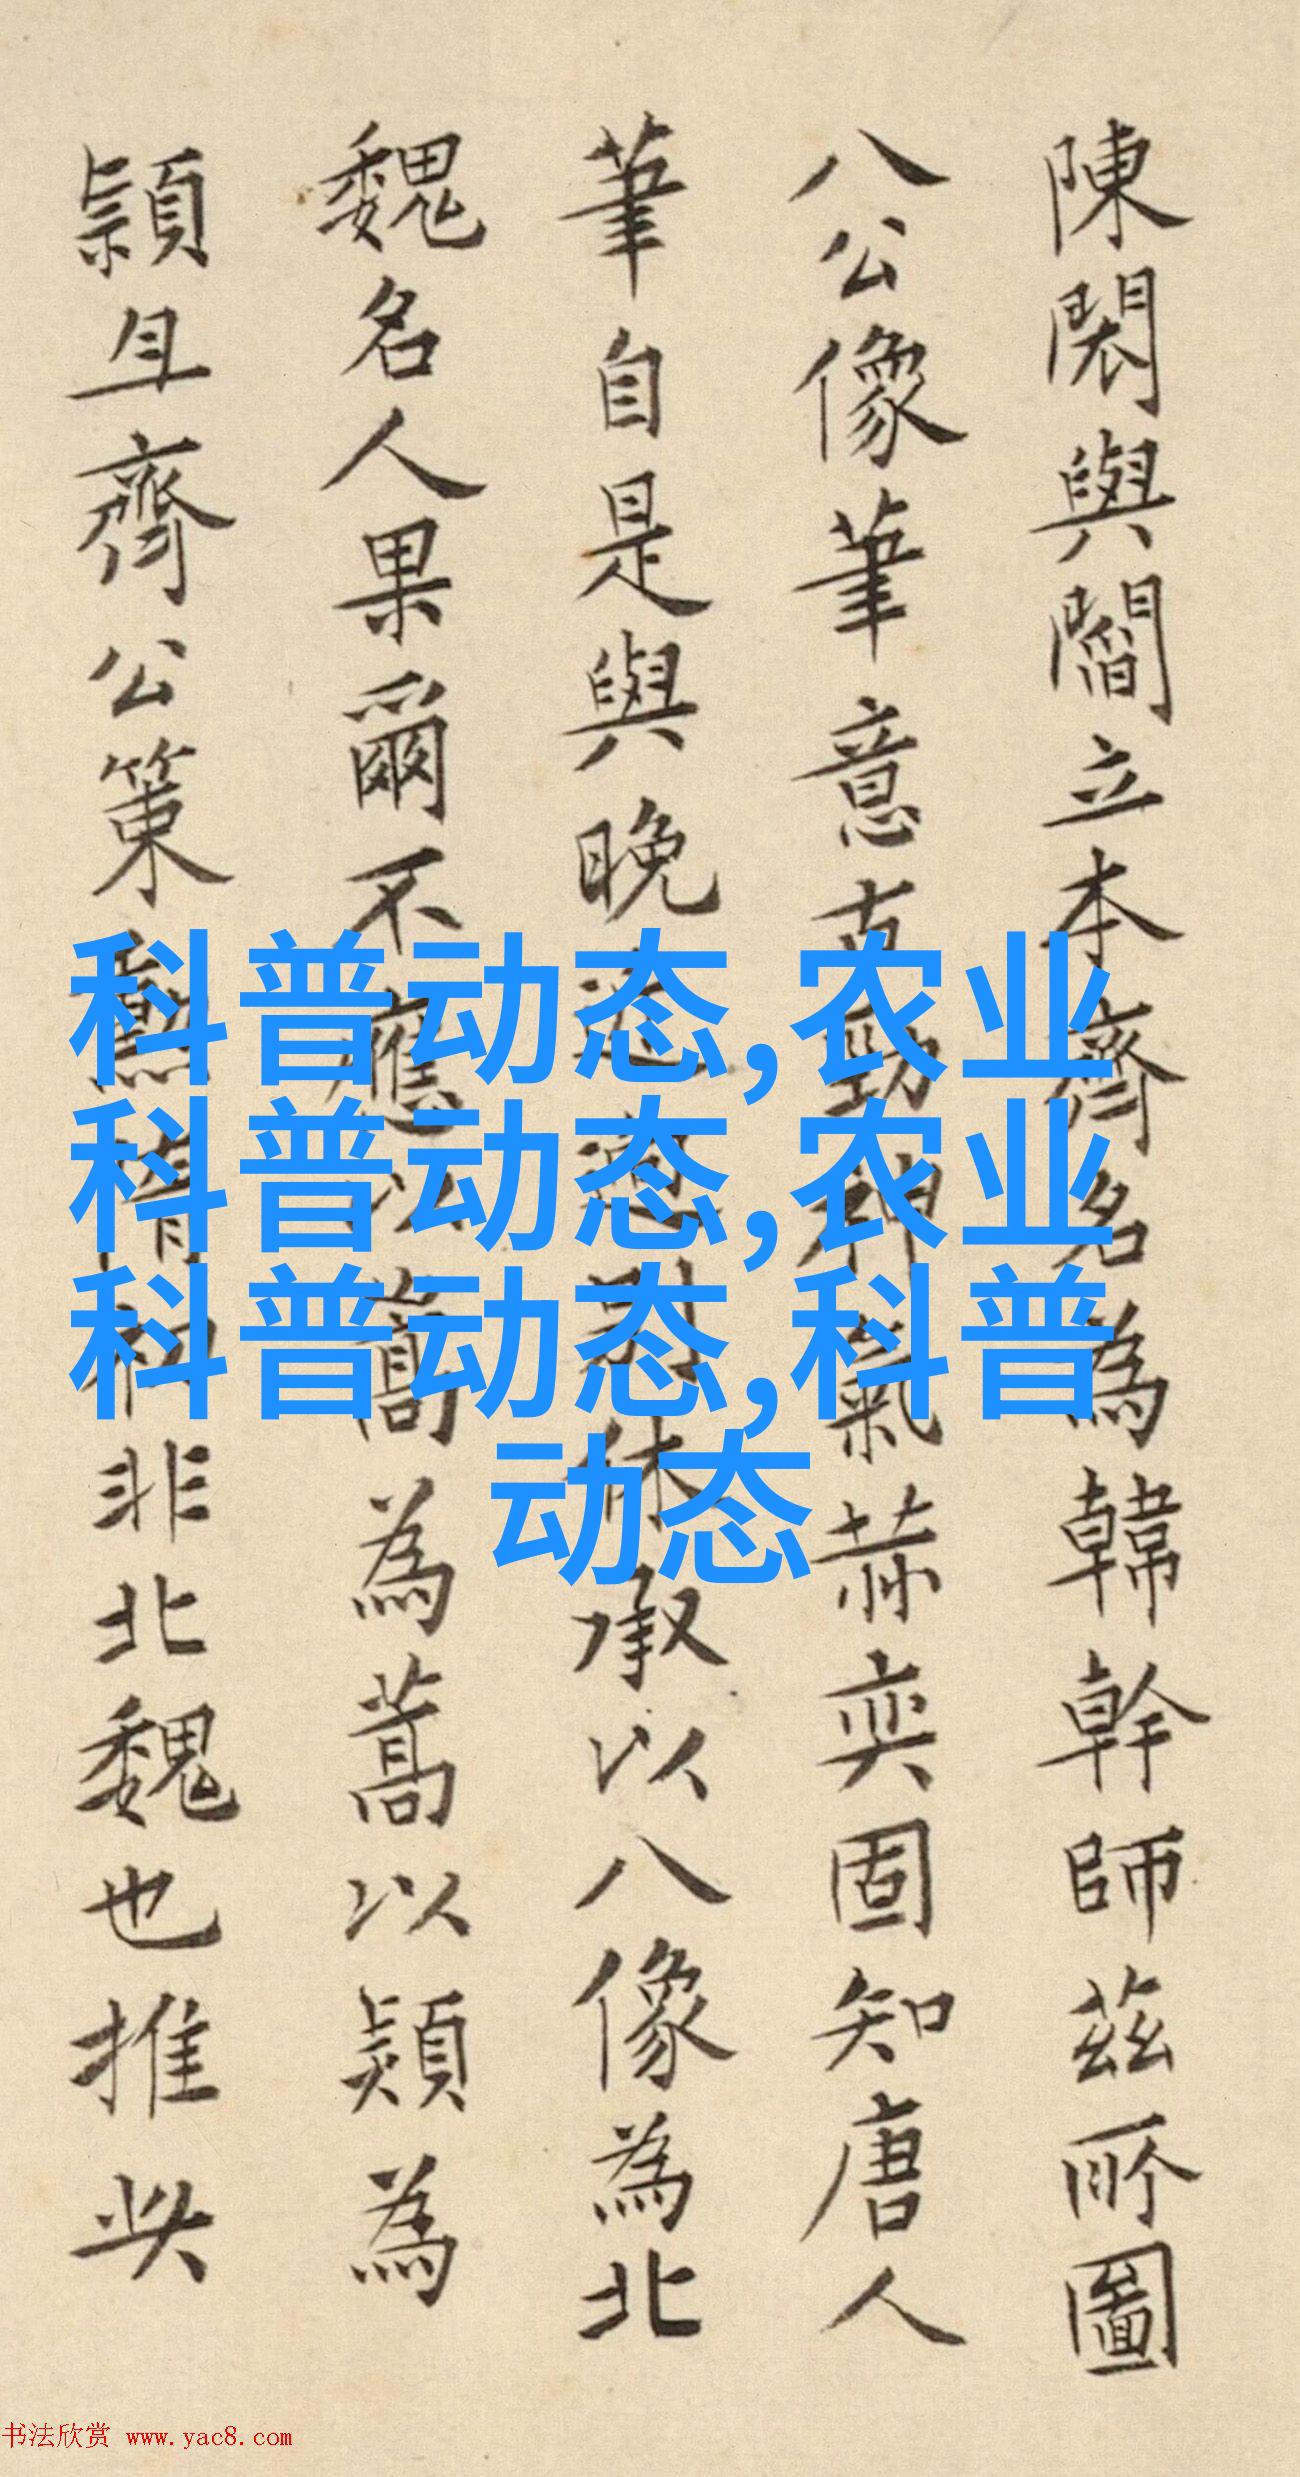 陳閎與閻立本齊名為韓幹師茲所圖
八公像筆意古勁神氣赫奕固知唐人
筆自是與晚近迥別休承以八像為北
魏名人果爾不應以蒿為蒿以熲為
頴且齊公策勳情初非北魏也推此
科普动态,农业
科普动态,农业
科普动态,科普
动态
书法欣赏 www.yac8.com